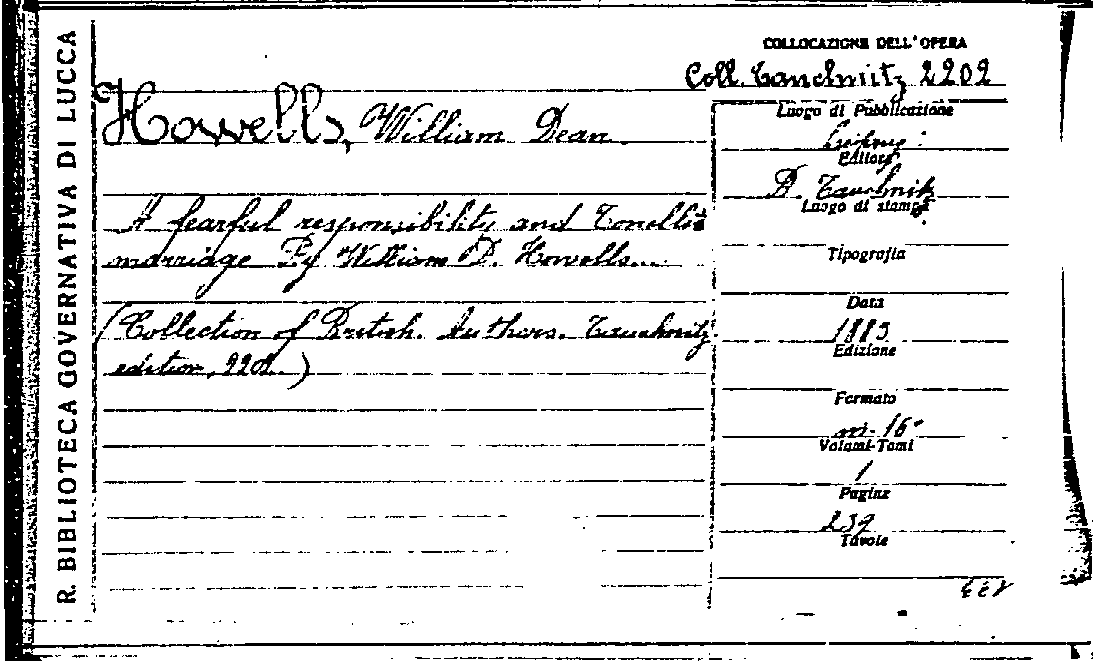 R. BIBLIOTECA GOVERNATIVA DI LUCCA
COLLOCAZIONE DELL'OPERA
Coll. Tauchnitz 2202
Howells, William Dean.
A fearful responsibility and Tonelli's
marriage By William D. Howells...
(Collection of British Authors. Tauchnitz
edition, 2202.)
Luogo di Pubblicazione
Editore
B. Tauchnitz
Luogo di stampa
Tipografia
Data
1883
Edizione
Formato
in-16°
Volumi-Tomi
1
Pagine
239
Tavole